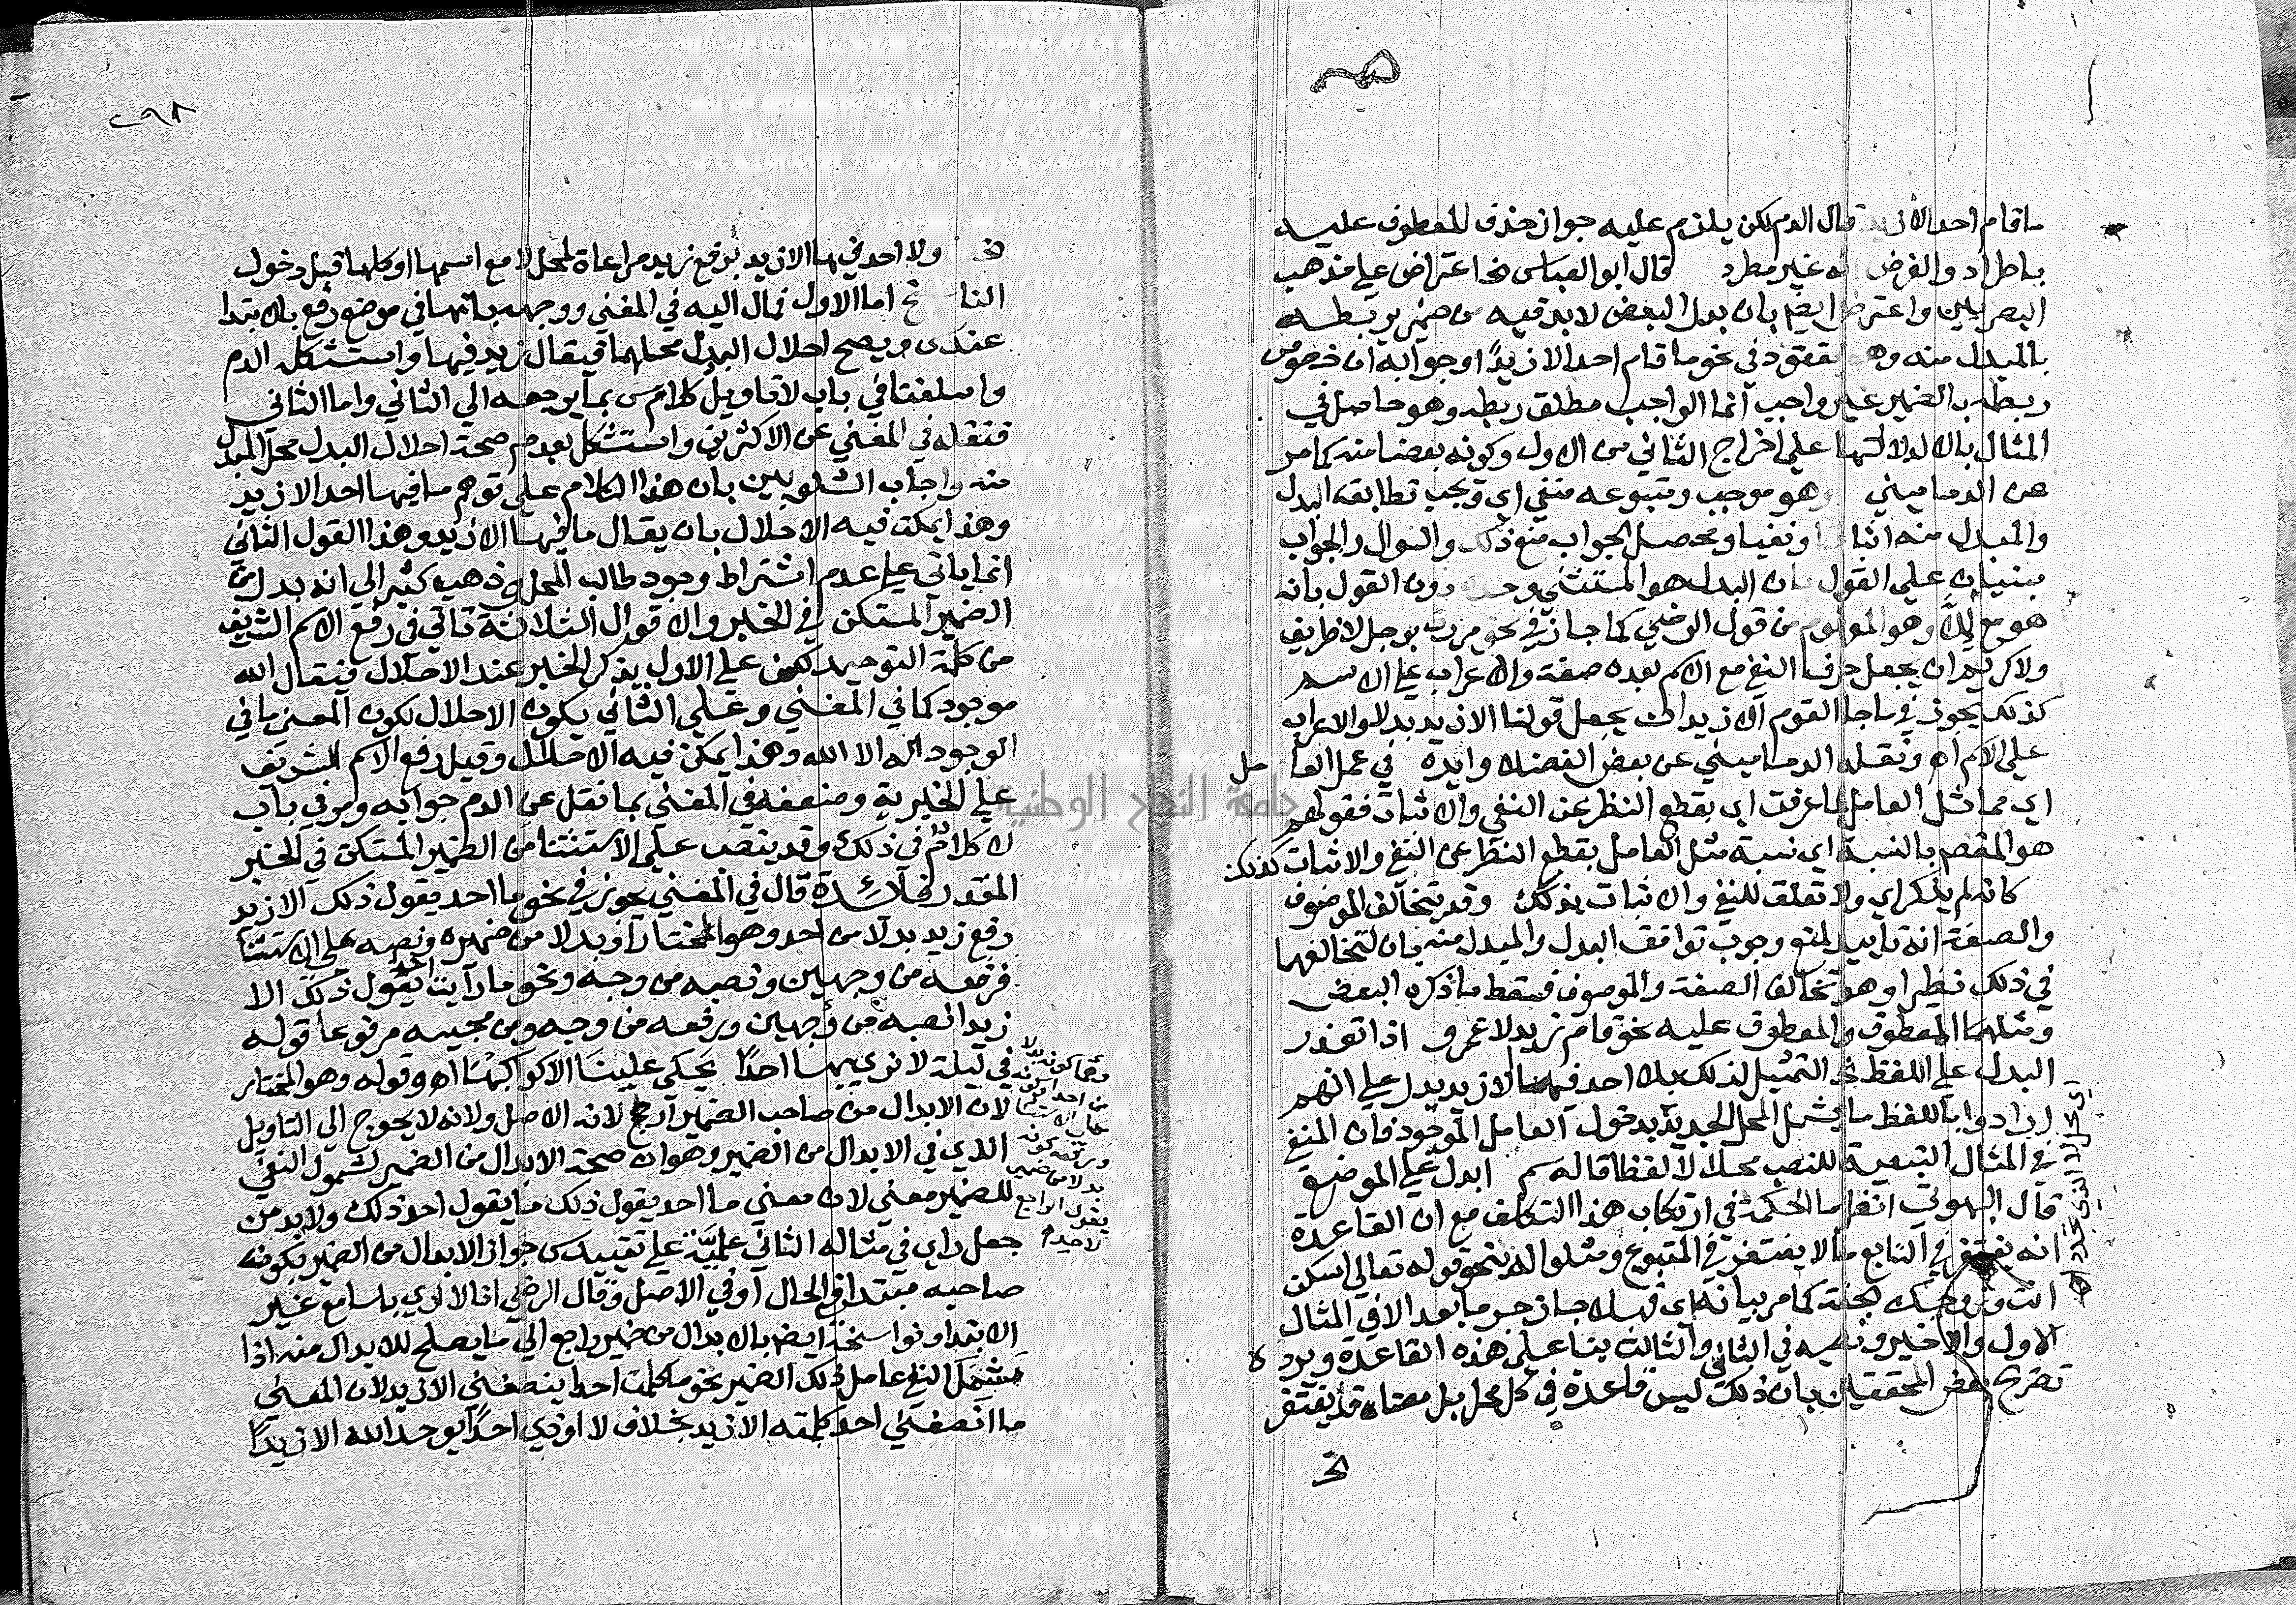 ما قام احد الا زيد قال الدم لكن يلزم عليه جواز حذف المعطوف عليه
باطراد والفرض انه غير مطرد قال ابو العباس الخ اعتراض علي مذهب
البصريين واعترض ايضا بان بدل البعض لا بد فيه من ضمير يربطه
بالمبدل منه وهو مفقود في نحو ما قام احد الا زيد او جوابه ان خصوص
ربطه بالضمير غير واجب انما الواجب مطلق ربطه وهو حاصل في
المثال بالا لدلالتها علي اخراج الثاني من الاول وكونه بعضا منه كما مر
عن الدماميني وهو موجب ومتبوعه منفي اي ويجب تطابق البدل
والمبدل منه اثباتا ونفيا ومحصل الجواب منع ذلك والسوال والجواب
مبنيان علي القول بان البدل هو المستثني وحده دون القول بانه
هو مع الا وهو المفهوم من قول الرضي كما جاز في نحو مررت برجل لا ظريف
ولا كريم ان يجعل حرف النفي مع الاسم بعده صفة والاعراب علي الاسم
كذلك يجوز في ما جا القوم الا زيد ان يجعل قولنا الا زيد بدلا والاعراب
علي الاسم اه ونقله الدماميني عن بعض الفضلا وايده في عمل العامل
اي مماثل العامل لما عرفت اي بقطع النظر عن النفي والاثبات فقولهم
هو المقصود بالنسبة اي نسبة مثل العامل بقطع النظر عن النفي والاثبات كذلك
كانه لم يذكر اي ولا تعلق للنفي والاثبات بذلك وقد يتخالف الموصوف
والصفة انه تاييد لمنع وجوب توافق البدل والمبدل منه بان لتخالفهما
في ذلك نظيرا وهو تخالف الصفة والموصوف فسقط ما ذكره البعض
ومثلهما المعطوف والمعطوف عليه نحو قام زيد لا عمرو اذا تعذر
البدل علي اللفظ الخ التمثيل لذلك بلا احد فيها الا زيد يدل علي انهم
ارادوا باللفظ ما يشمل المحل الجديد بدخول العامل الموجود فان المنفي
في المثال التبعية للنصب محلا لا لفظا قاله سم ابدل علي الموضع
اي محل لا الذي تجدد اه
قال البهوتي انظر ما الحكمة في ارتكاب هذا التكلف مع ان القاعدة
انه يغتفر في التابع ما لا يغتفر في المتبوع ومثلوا له بنحو قوله تعالي اسكن
انت وزوجك الجنة كما مر بيانه اي فهلا جاز جر ما بعد الا في المثال
الاول والاخير ونصبه في الثاني والثالث بنا علي هذه القاعدة ويرده
تصريح بعض المحققين بان ذلك ليس قاعدة في كل محل بل معناه قد يغتفر
نحو
٢٩٨
نحو ولا احد فيها الا زيد برفع زيد مراعاة لمحل لا مع اسمها او كلها قبل دخول
الناسخ اما الاول فمال اليه في المغني ووجهه بانها في موضع رفع بالابتدا
عند س ويصح احلال البدل محلهما فيقال زيد فيها واستشكله الدم
واسلفنا في باب لا تاويل كلام س بما يرجعه الي الثاني واما الثاني
فنقله في المغني عن الاكثرين واستشكل بعدم صحة احلال البدل محل المبدل
منه واجاب الشلوبين بان هذا الكلام علي توهم ما فيها احد الا زيد
وهذا يمكن فيه الاحلال بان يقال ما فيها الا زيد وهذا القول الثاني
انما ياتي علي عدم اشتراط وجود طالب المحل وذهب كثير الي انه بدل من
الضمير المستكن في الخبر والاقوال الثلاثة تاتي في رفع الاسم الشريف
من كلمة التوحيد لكن علي الاول يذكر الخبر عند الاحلال فيقال الله
موجود كما في المغني وعلي الثاني يكون الاحلال لكون المعني ما في
الوجود اله الا الله وهذا يمكن فيه الاحلال وقيل رفع الاسم الشريف
علي الخبرية وضعفه في المغني بما نقل عن الدم جوابه ومر في باب
لا كلام في ذلك وقد ينصب علي الاستثنا من الضمير المستكن في الخبر
المقدر فائدة قال في المغني يجوز في نحو ما احد يقول ذلك الا زيد
رفع زيد بدلا من احد وهو المختار او بدلا من ضميره ونصبه علي الاستثنا
فرفعه من وجهين ونصبه من وجه ونحو ما رايت احدا يقول ذلك الا
زيدا نصبه من وجهين ورفعه من وجه ومن مجيئه مرفوعا قوله
في ليلة لا نري بها احدا يحكي علينا الا كواكبها اه وقوله وهو المختار
لان الابدال من صاحب الضمير ارجح لانه الاصل ولانه لا يحوج الي التاويل
الذي في الابدال من الضمير وهو ان صحة الابدال من الضمير لشمول النفي
للضمير معني لان معني ما احد يقول ذلك ما يقول احد ذلك ولا بد من
وهما كونه بدلا
من احد او كونه
علي الاستثنا
ورفعه كونه
بدلا من ضمير
يقول الراجع
لاحد اه
جعل راي في مثاله الثاني علمية علي تقييد س جواز الابدال من الضمير بكونه
صاحبه مبتدا في الحال او في الاصل وقال الرضي انا لا اري باسا مع غير
الابتدا ونواسخه ايضا بالابدال من ضمير راجع الي ما يصلح للابدال منه اذا
شمل النفي عامل ذلك الضمير نحو ما كلمت احدا ينصفني الا زيد لان المعني
ما انصفني احد كلمته الا زيد بخلاف لا اوذي احدا يوحد الله الا زيدا
جامعة النجاح الوطنية